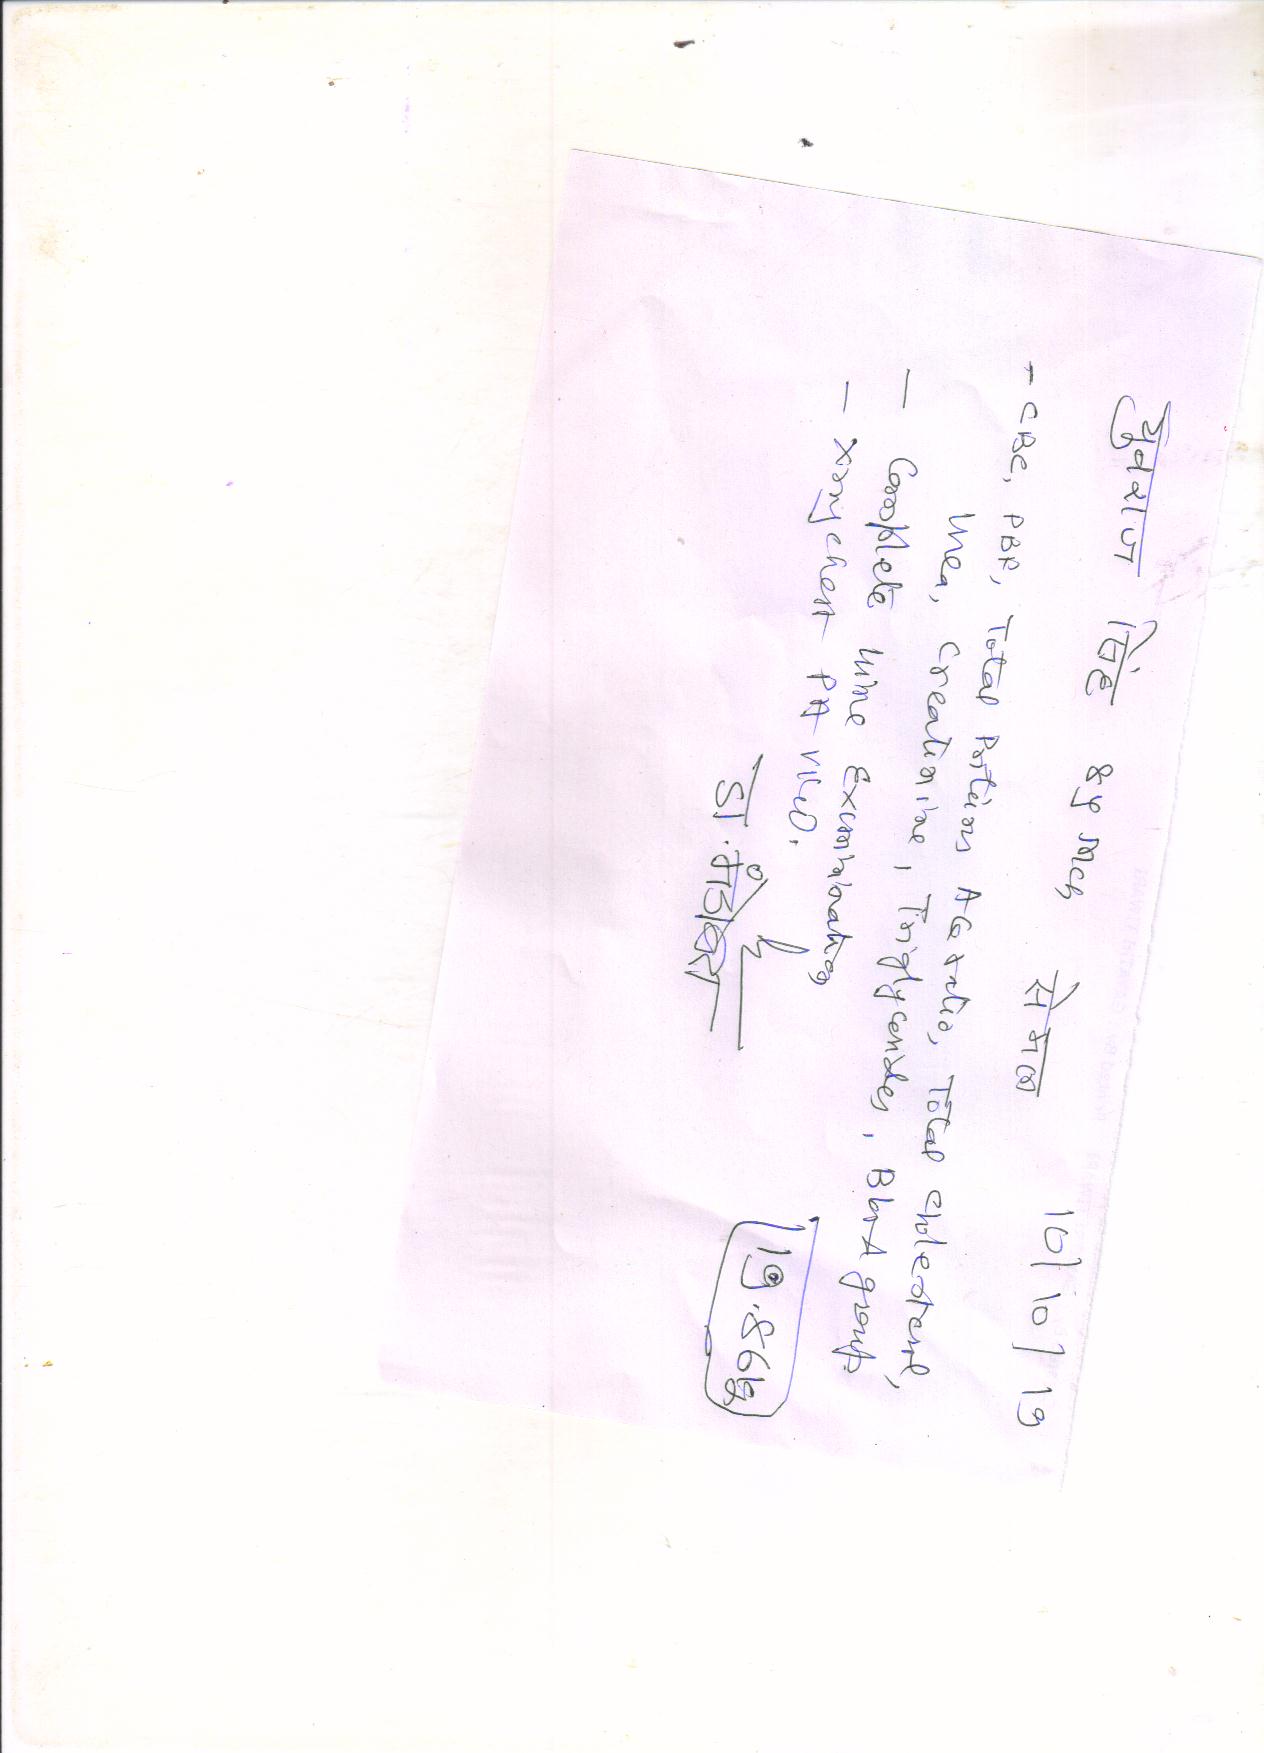 युवराज सिंह 8y Mch सेमल 10/10/19
- CBC, PBF, Total Protiens AG ratio, Total cholesterol,
Urea, Creatinine, Triglycerides, Blood group.
- Complete Urine Examination
- Xray chest PA view.
डा. मंजू
19.8 kg